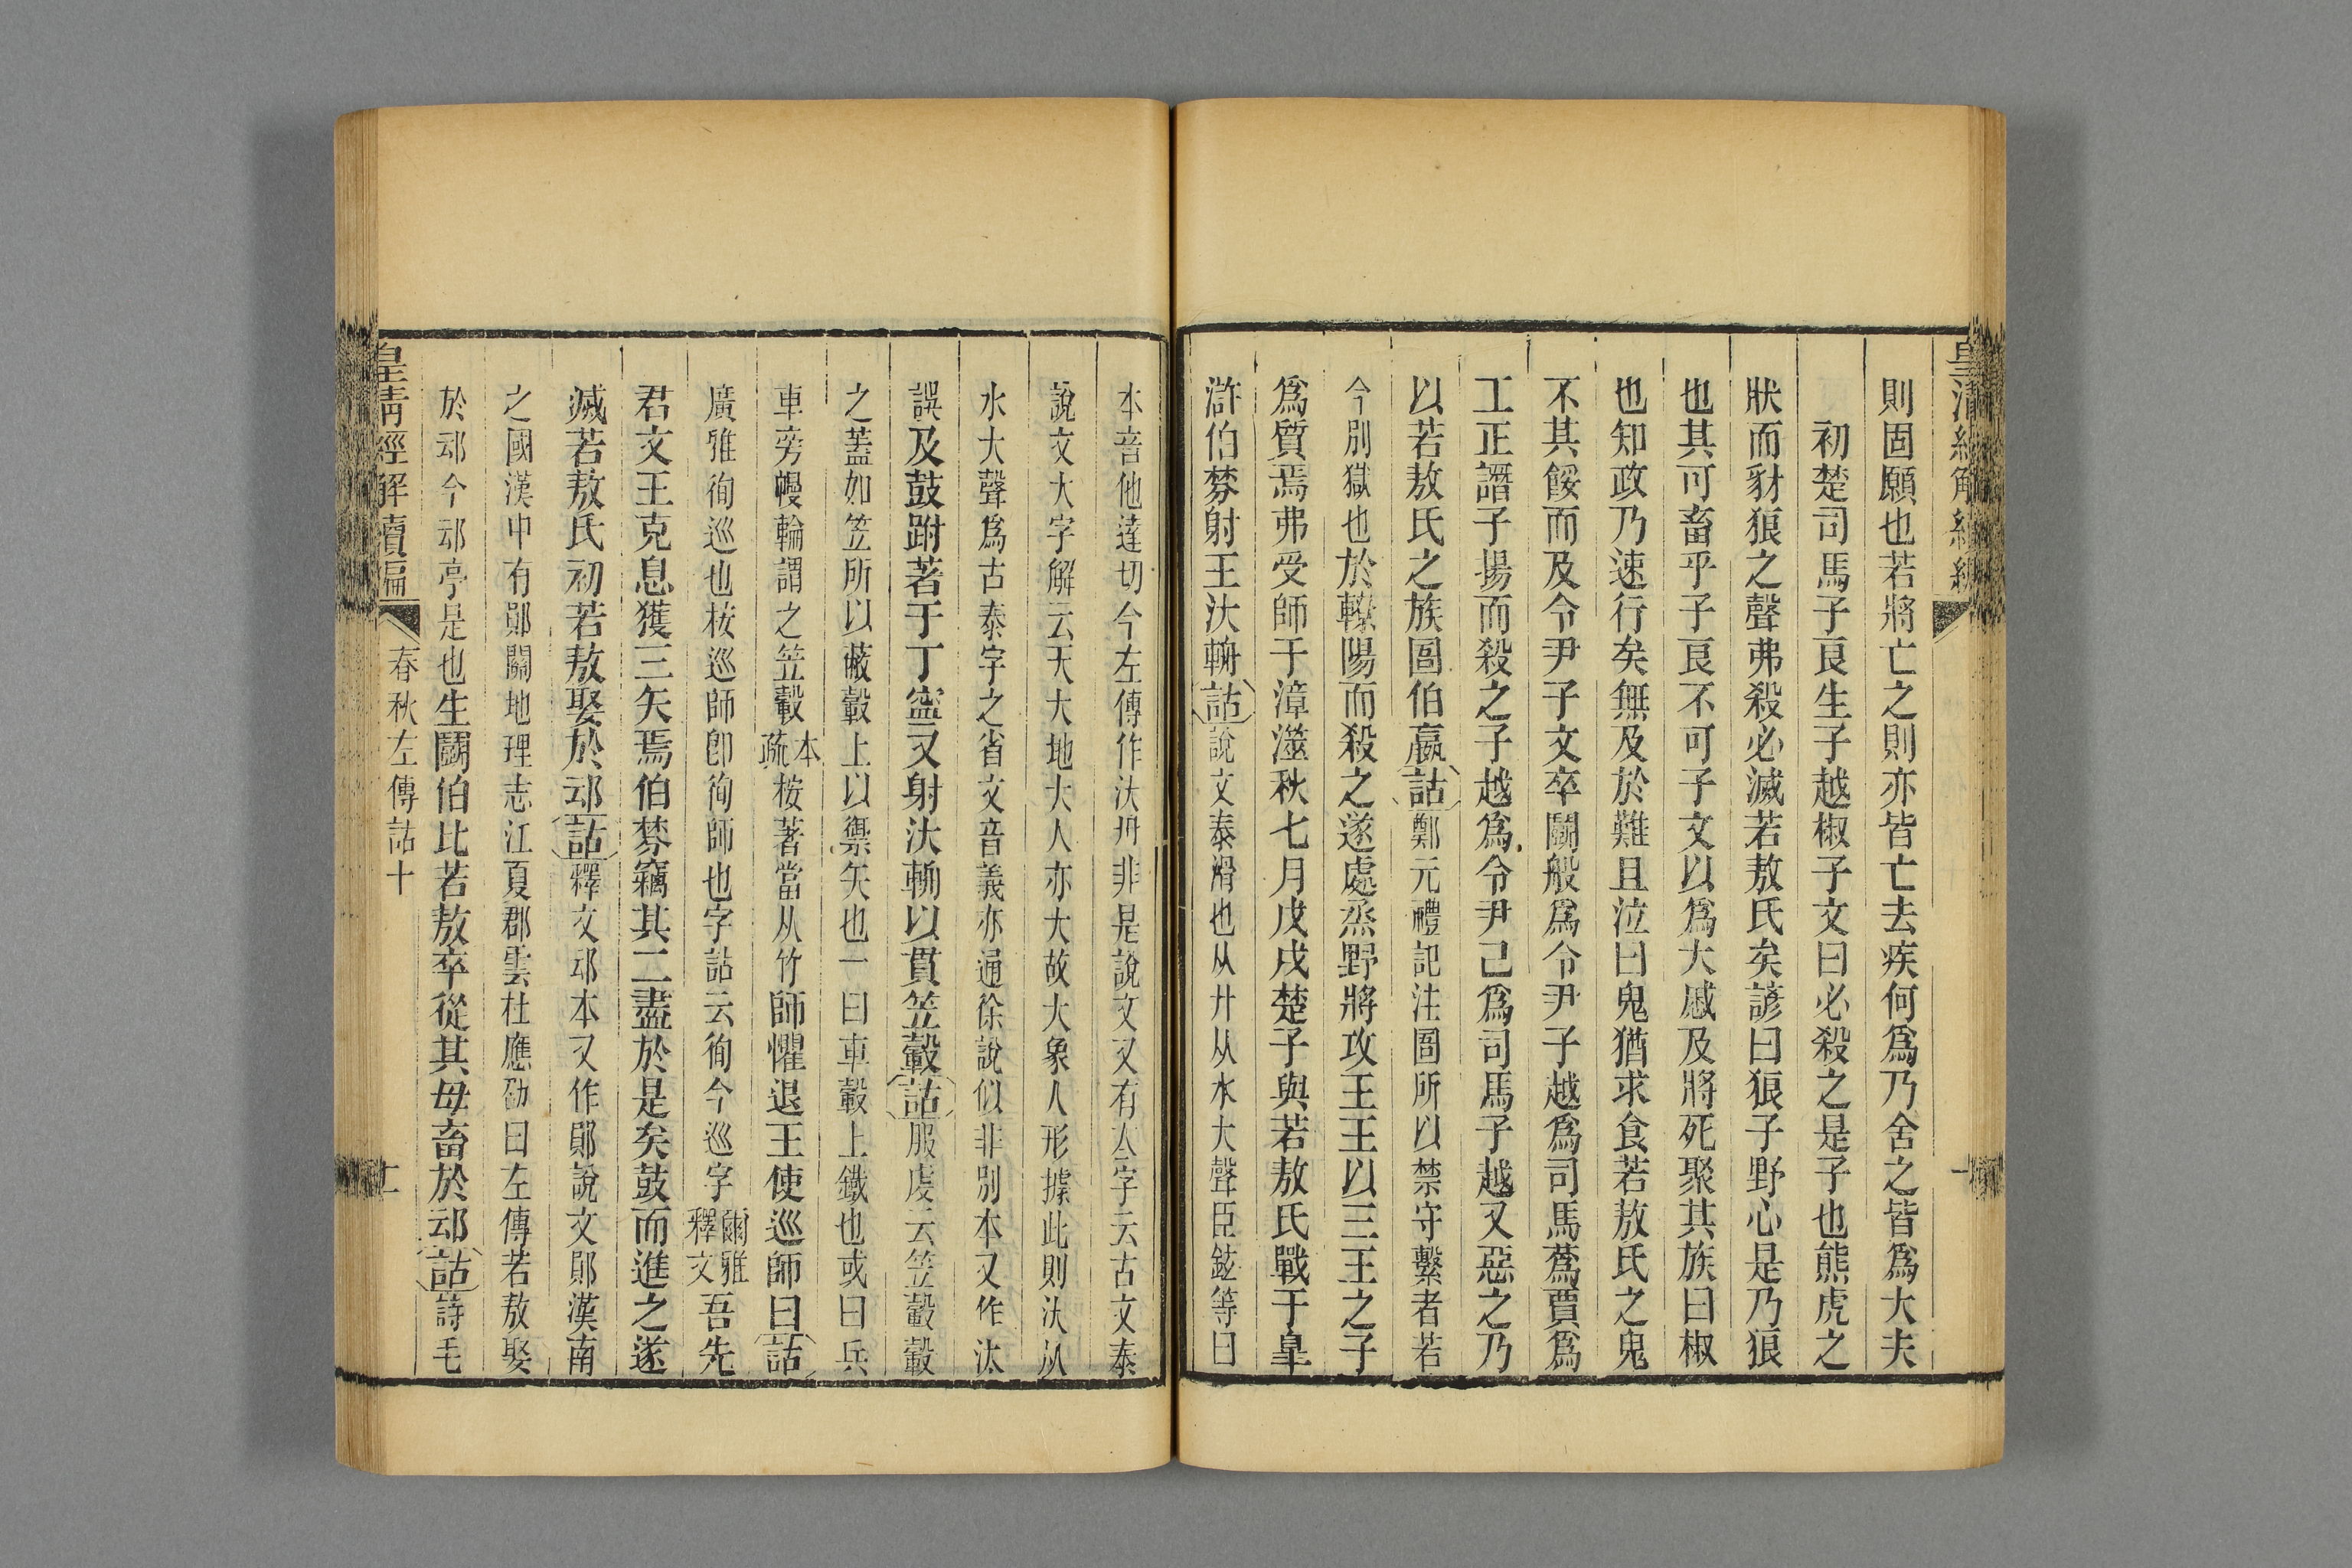 則固願也若將亡之則亦皆亡去疾何爲乃舍之皆爲大夫
初楚司馬子良生子越椒子文曰必殺之是子也熊虎之
狀而豺狼之聲弗殺必滅若敖氏矣諺曰狼子野心是乃狼
也其可畜乎子良不可子文以爲大慼及將死聚其族曰椒
也知政乃速行矣無及於難且泣曰鬼猶求食若敖氏之鬼
不其餒而及令尹子文卒鬭般爲令尹子越爲司馬蒍賈爲
工正譖子揚而殺之子越爲令尹己爲司馬子越又惡之乃
以若敖氏之族圄伯嬴詁鄭元禮記注圄所以禁守繫者若
今別獄也於轑陽而殺之遂處烝野將攻王王以三王之子
爲質焉弗受師于漳澨秋七月戊戌楚子與若敖氏戰于皐
滸伯棼射王汏輈詁說文泰滑也从廾从水大聲臣鉉等曰
本音他達切今左傳作汏輈非是說文又有夳字云古文泰
說文大字解云天大地大人亦大故大象人形據此則汏从
水大聲爲古泰字之省文音義亦通徐說似非別本又作汰
誤及鼓跗著于丁寍又射汏輈以貫笠轂詁服虔云笠轂轂
之蓋如笠所以蔽轂上以禦矢也一曰車轂上鐵也或曰兵
車旁幔輪謂之笠轂本疏桉著當从竹師懼退王使巡師曰詁
廣雅徇巡也桉巡師卽徇師也字詁云徇今巡字爾雅釋文吾先
君文王克息獲三矢焉伯棼竊其二盡於是矣鼓而進之遂
滅若敖氏初若敖娶於䢵詁釋文䢵本又作鄖說文鄖漢南
之國漢中有鄖關地理志江夏郡雲杜應劭曰左傳若敖娶
於䢵今䢵亭是也生鬭伯比若敖卒從其母畜於䢵詁詩毛
皇清經解續編
春秋左傳詁十